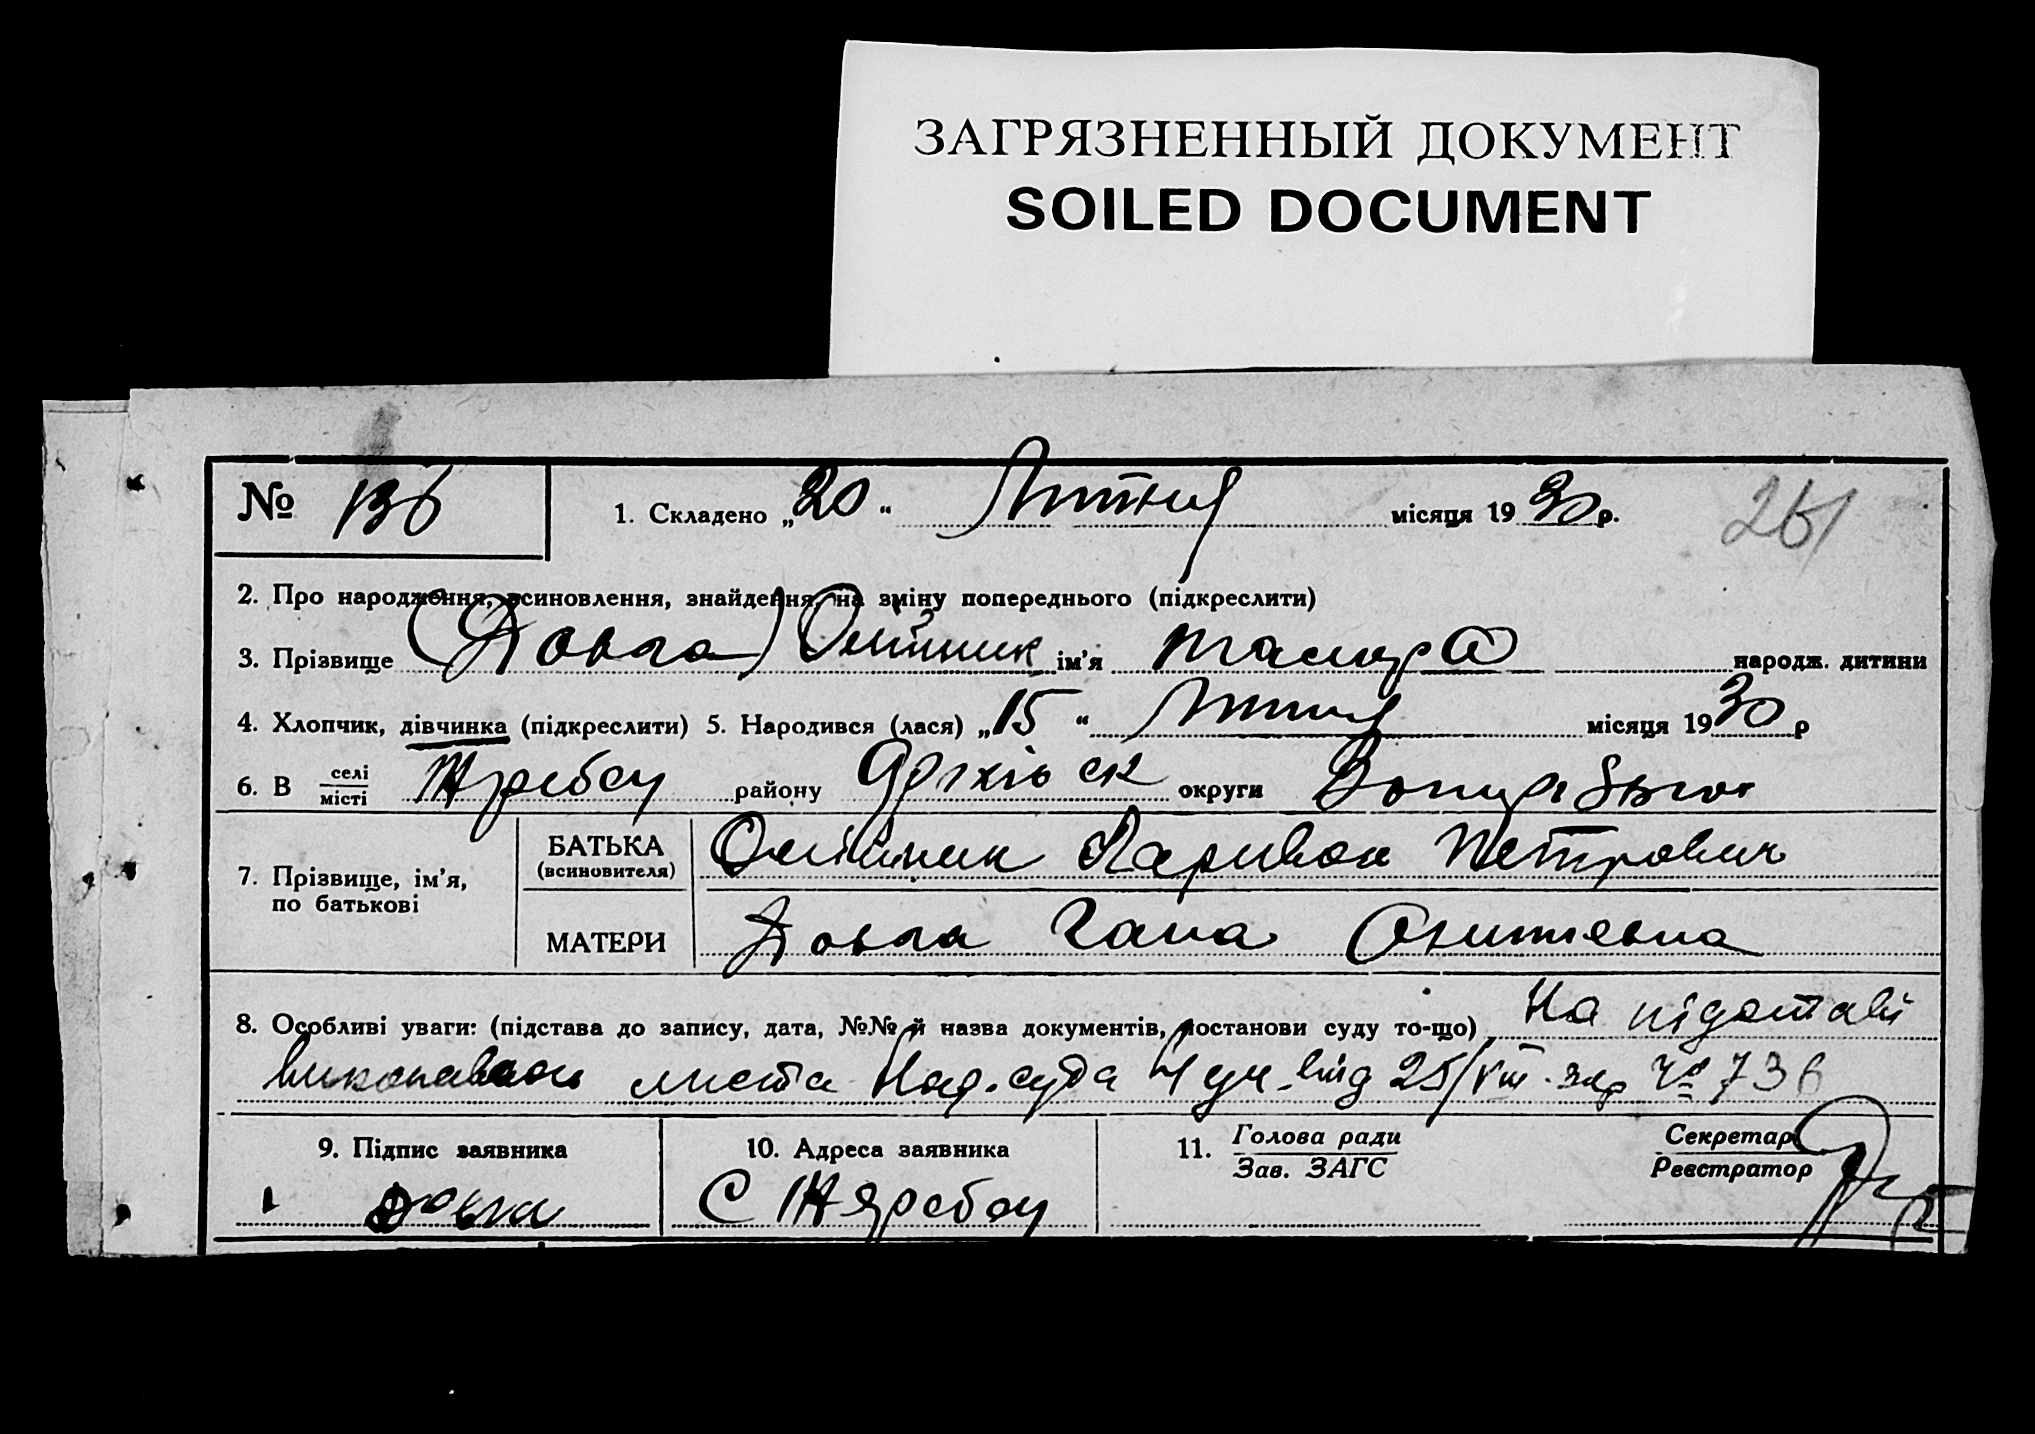 ЗАГРЯЗНЕННЫЙ ДОКУМЕНТ
SOILED DOCUMENT
№ 136
1. Складено „20“ Липня місяця 1930 р.
261
2. Про народження, всиновлення, знайдення, на зміну попереднього (підкреслити)
3. Прізвище (Довга) Олійник ім'я Тамара народж. дитини
4. Хлопчик, дівчинка (підкреслити) 5. Народився (лася) „15“ Липня місяця 1930 р
6. В селі/місті району округи
7. Прізвище, ім'я, по батькові
БАТЬКА (всиновителя) Олійник Ларивон Петрович
МАТЕРИ Довга Гана
8. Особливі уваги: (підстава до запису, дата, №№ й назва документів, постанови суду то-що) На підставі
листа Нар. суда 4 уч. від 25/VIII № 736
9. Підпис заявника
Довга
10. Адреса заявника
С
11. Голова ради/Зав. ЗАГС
Секретар/Реєстратор